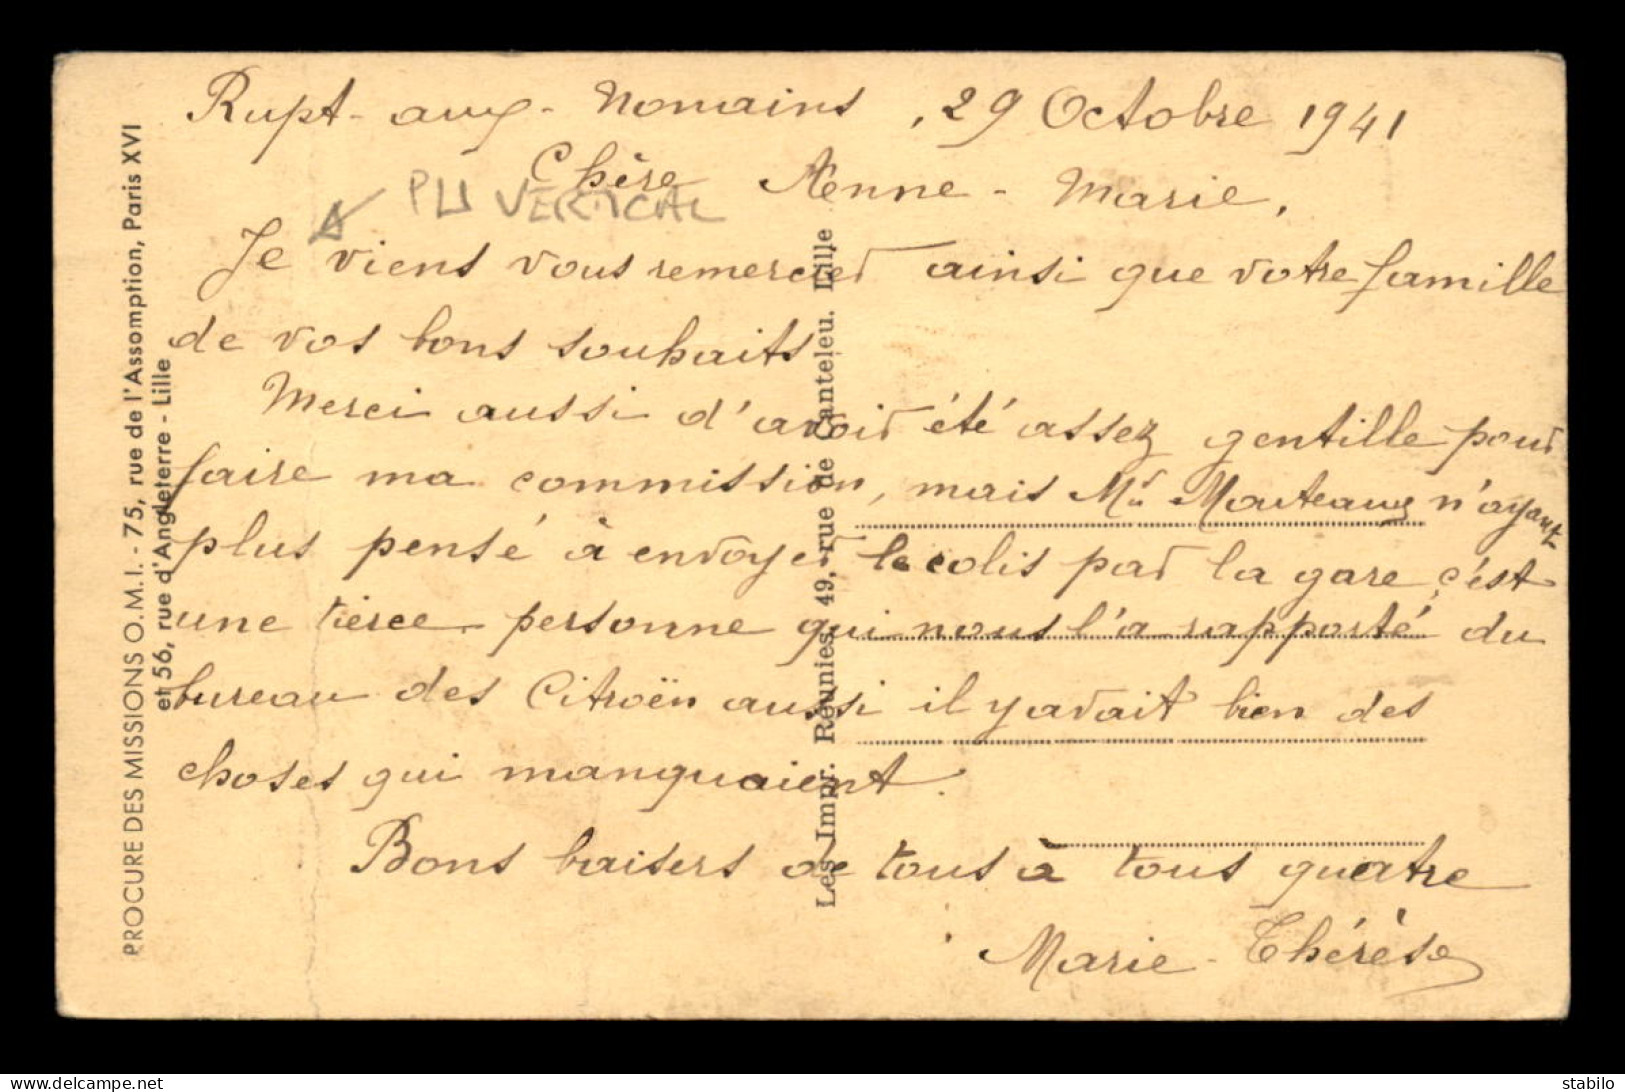 Rupt-aux-Nonains, 29 Octobre 1941
Chère Anne-Marie,
PLI VERTICAL
Je viens vous remercier ainsi que votre famille
de vos bons souhaits.
Merci aussi d'avoir été assez gentille pour
faire ma commission, mais Mr n'ayant
plus pensé à envoyer le colis par la gare, c'est
une tierce personne qui nous l'a rapporté du
bureau des Citroën aussi il y avait bien des
choses qui manquaient.
Bons baisers de tous à tous quatre
Marie-Thérèse
PROCURE DES MISSIONS O.M.I. - 75, rue de l'Assomption, Paris XVI
et 56, rue d'Angleterre - Lille
Les Impr. Réunies, 49, rue de Canteleu. Lille
stabilo